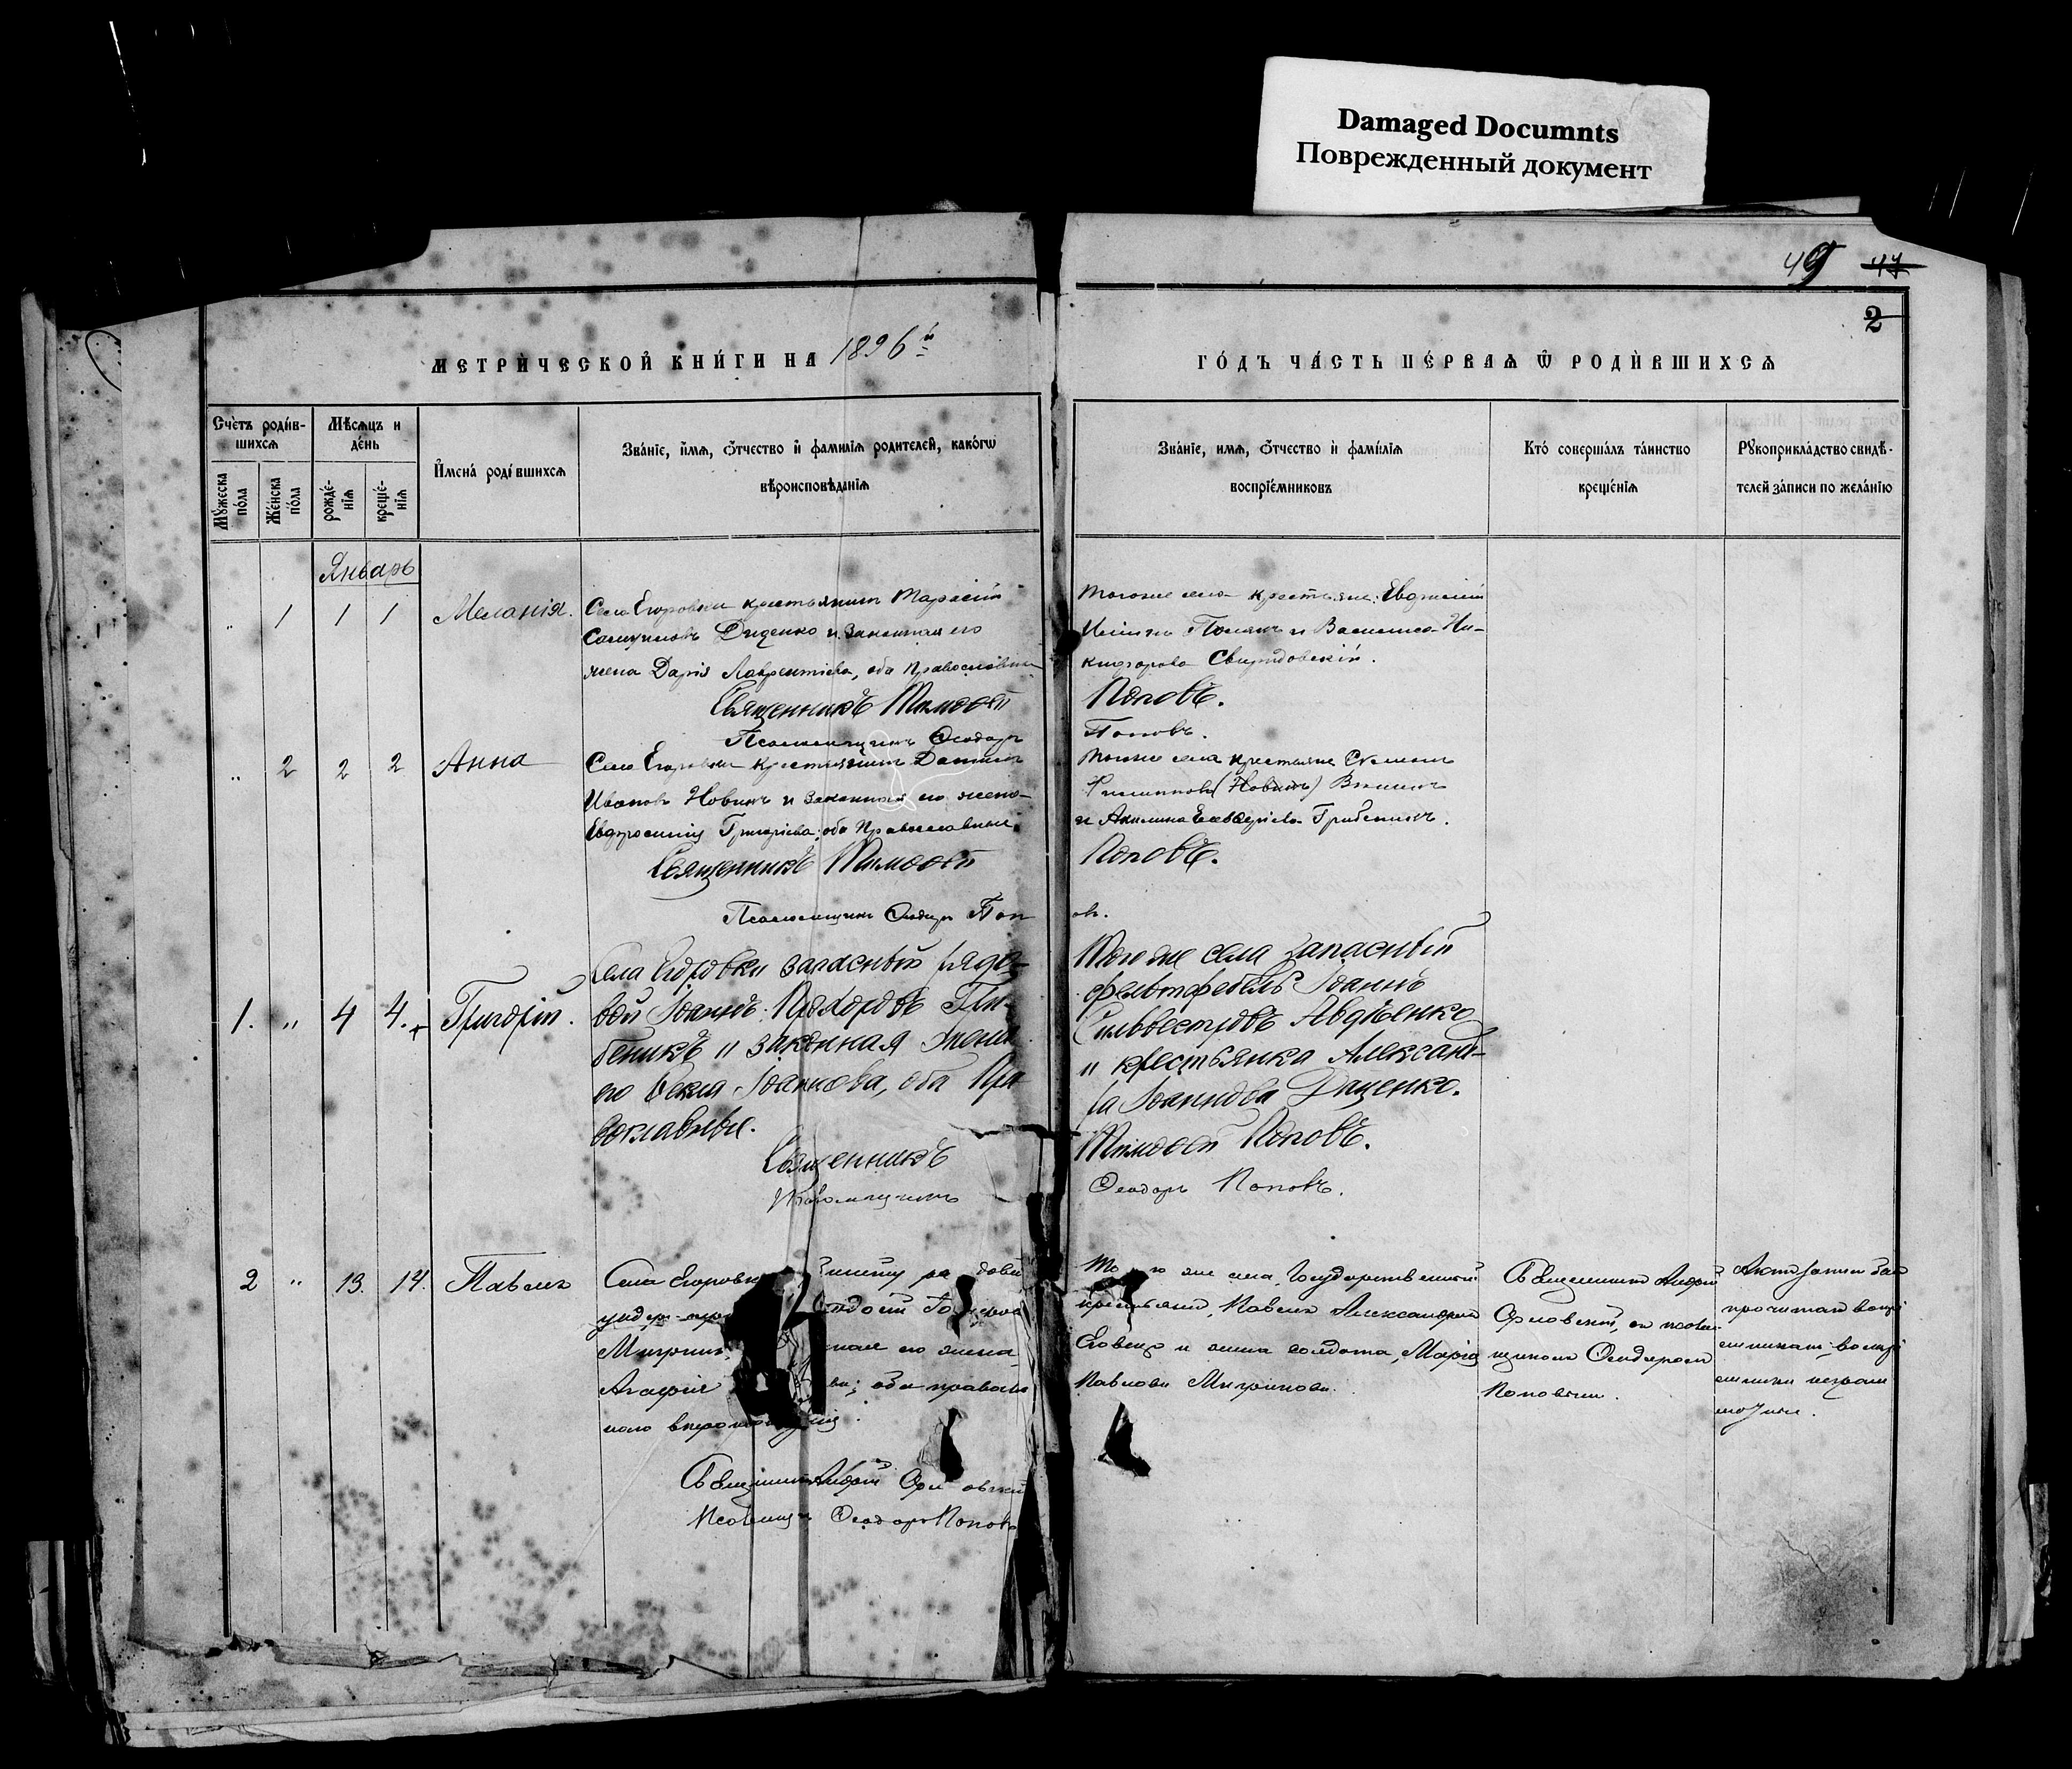 Damaged Documnts
Поврежденный документ
49 47
2
МЕТРИ́ЧЕСКОЙ КНИ́ГИ НА 1896й
ГО́ДЪ ЧА́СТЬ ПЕ́РВАѦ Ѿ РОДИ́ВШИХСѦ
Счетъ роди́в-
шихсѧ
Мꙋжеска по́ла
Же́нска по́ла
Мѣ́сѧцъ и
де́нь
рожде́-
нїѧ
креще́-
нїѧ
И҆мена́ роди́вшихсѧ
Зва́нїе, и҆́мѧ, ѻ҆́тчество и҆ фами́лїѧ роди́телей, како́гѡ
вѣроисповѣ́данїѧ
Зва́нїе, имѧ, ѻ҆́тчество и҆ фами́лїѧ
воспрїе́мниковъ
Кто́ соверша́лъ та́инство
креще́нїѧ
Рꙋкоприкла́дство свидѣ́-
телей за́писи по жела́нїю
Январь
" 1 1 1 Меланія.
Села Егоровки крестьянинъ Тарасій
Диденко и законная его
жена Дарія Лаврентіева, оба православные
Священникъ Тимоѳей
Псаломщикъ Ѳеодоръ
Того же села крестьяне: Евдокимъ
Полякъ и Василиса Ни-
кифорова
Поповъ.
Поповъ.
" 2 2 2 Анна
Села Егоровки крестьянинъ Даніилъ
Ивановъ Новикъ и законная его жена
Евфросинія Григоріева, оба православные.
Священникъ Тимоѳей
Псаломщикъ Ѳеодоръ Поп
Того же села крестьяне
Филипповъ (Новикъ)
и Акилина Елевѳеріева Грибеникъ.
Поповъ.
овъ.
1. " 4 4. Григорій.
Села Егоровки запасный рядо-
вой Іоаннъ Прохоровъ Гри-
беникъ и законная жена
его Ѳекла Іоаннова, оба Пра-
вославные.
Священникъ
Псаломщикъ
Того же села запасный
фельтфебель Іоаннъ
Сильвестровъ Авдѣенко
и крестьянка Александ-
ра Іоаннова Даценко.
Тимоѳей Поповъ.
Ѳеодоръ Поповъ.
2 " 13. 14. Павелъ
Села Егоровки
унтер-
Мигринъ
его жена
Агафія ва; оба правосла
наго вѣроисповѣданія.
Священникъ Андрей Орловскій
Псаломщ. Ѳеодоръ Поповъ
Того же села, Государственный
крестьянинъ, Павелъ Александровъ
и жена солдата, Марія
Павлова Мигринова.
Священникъ Андрей
Орловскій, съ псалом-
щикомъ Ѳеодоромъ
Поповымъ.
Актъ записи былъ
прочитанъ воспрі
емникамъ; воспрі
емники неграм